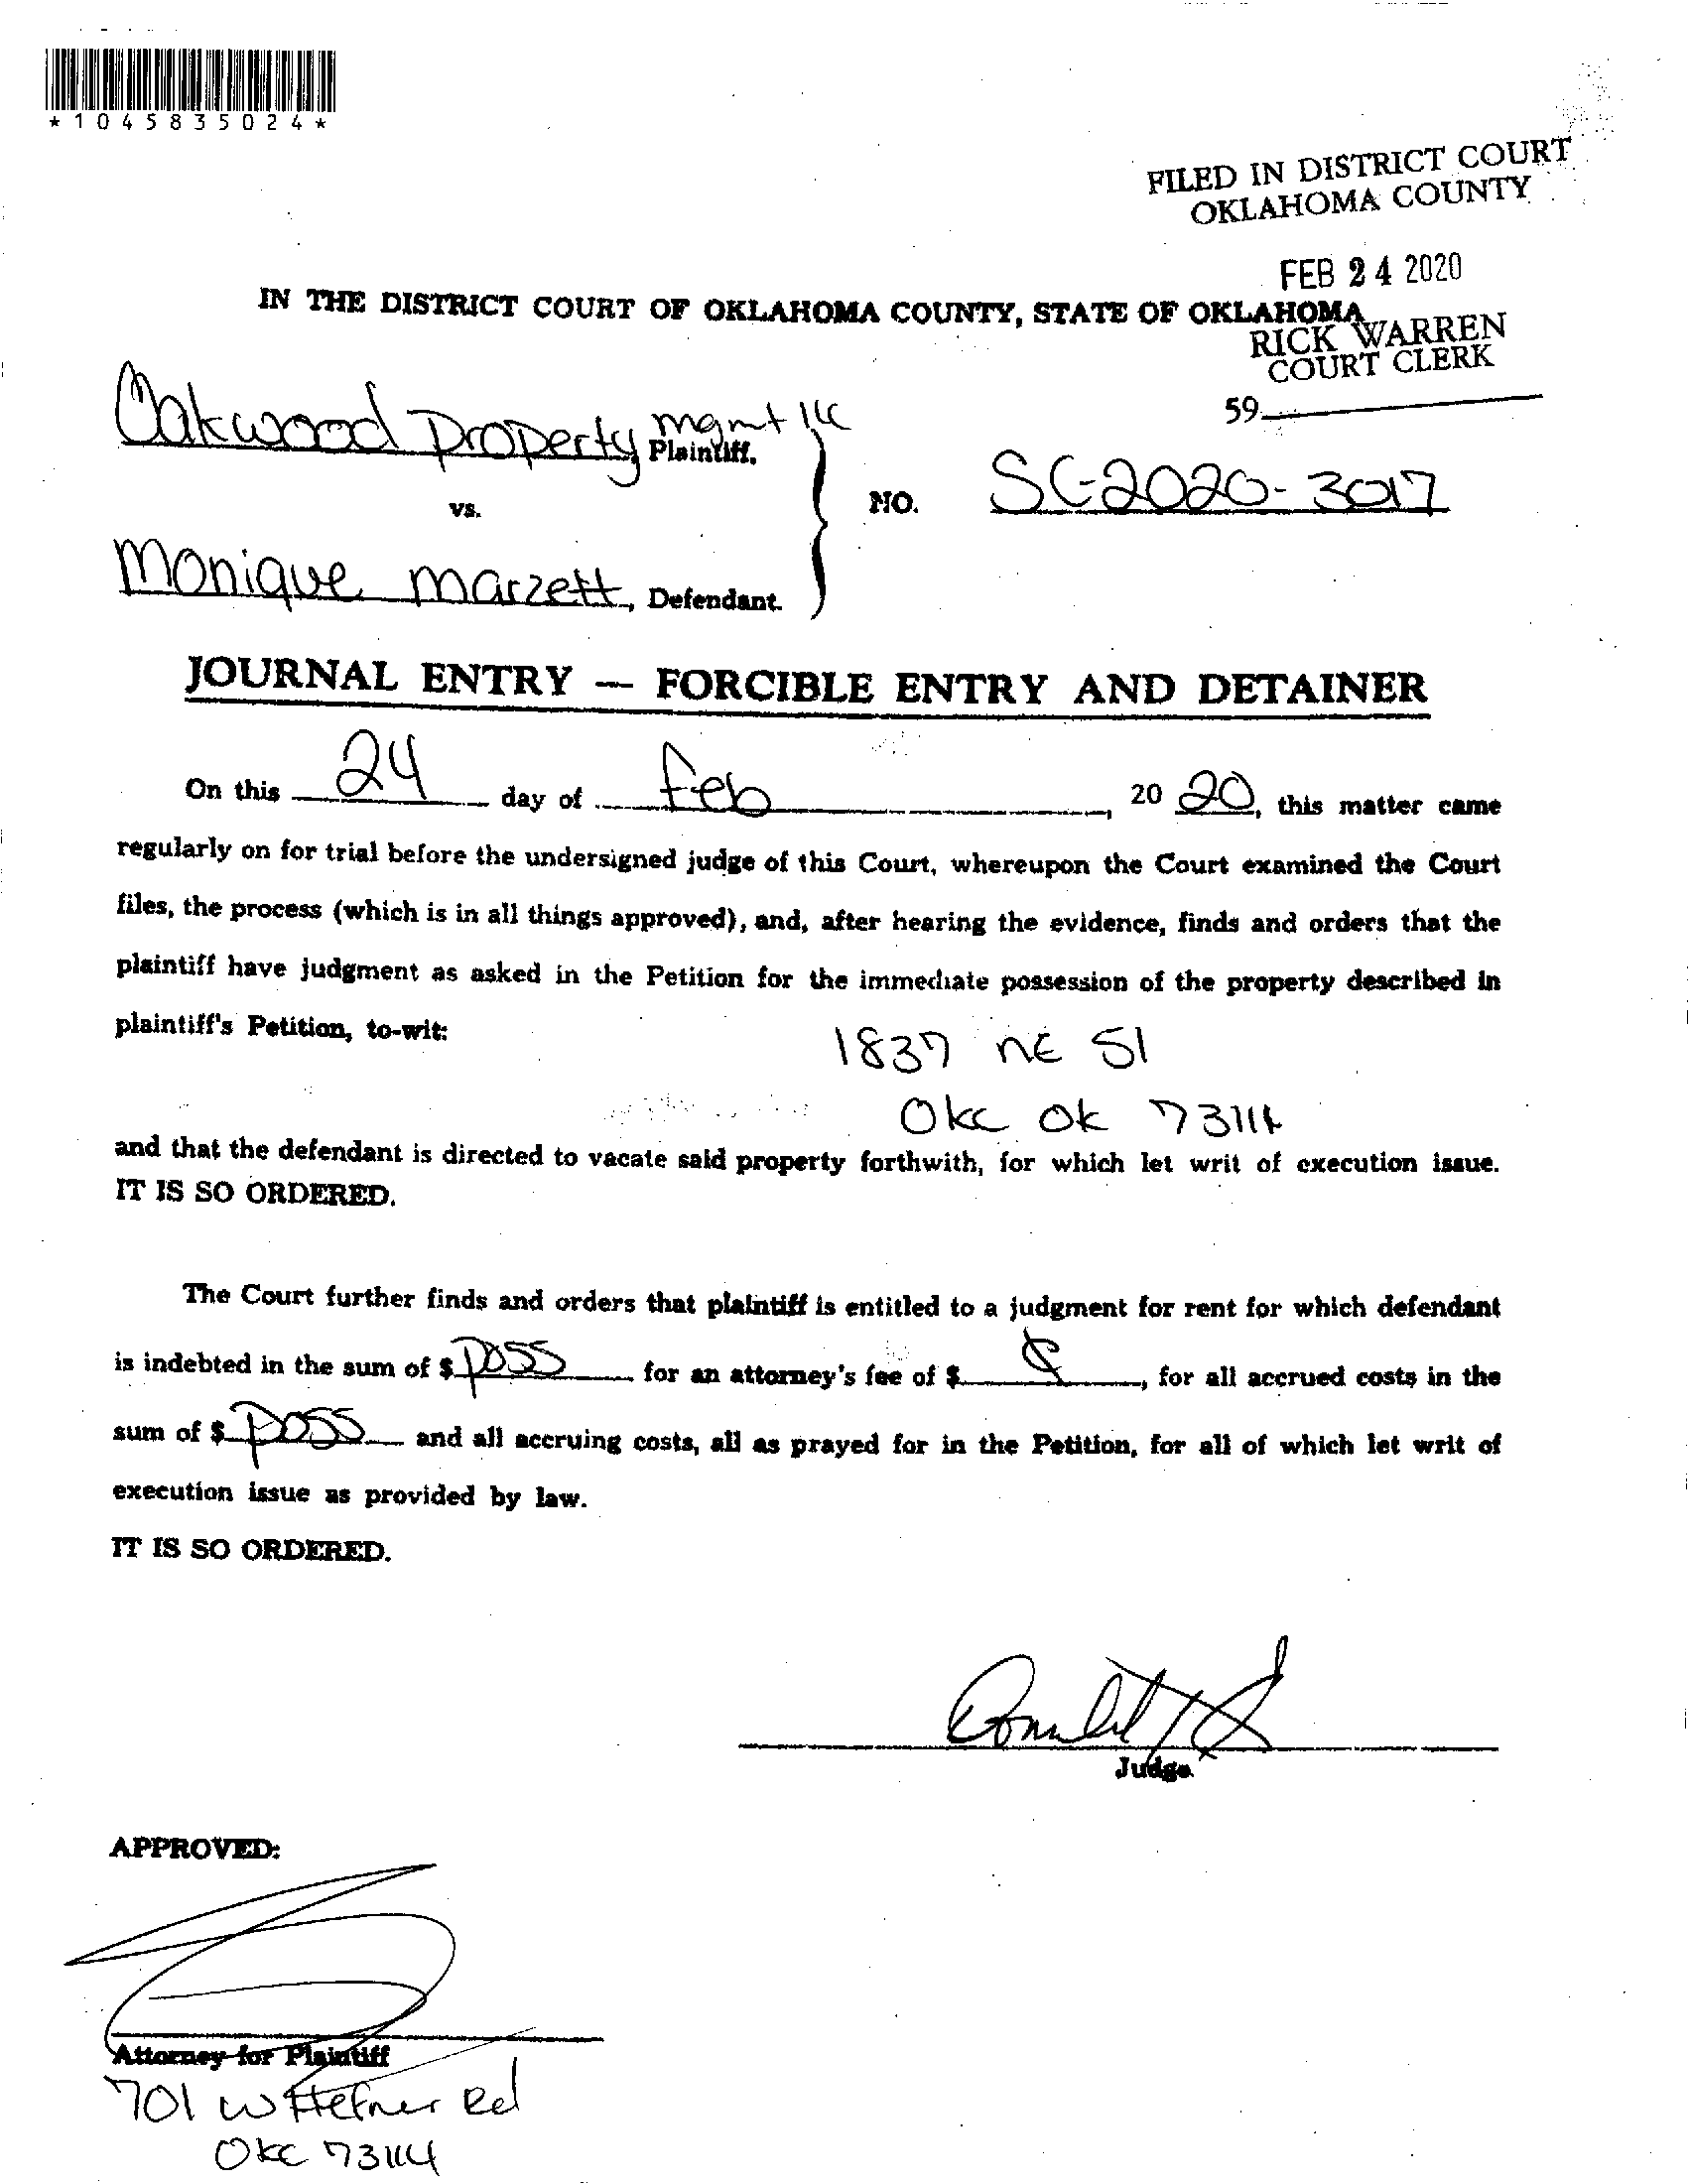 *1045835024*
FILED IN DISTRICT COURT
OKLAHOMA COUNTY
FEB 24 2020
IN THE DISTRICT COURT OF OKLAHOMA COUNTY, STATE OF OKLAHOMA
RICK WARREN
COURT CLERK
59
Oakwood Property mgmt llc
Plaintiff,
vs.
NO. SC-2020-3017
Monique Marzett, Defendant.
JOURNAL ENTRY — FORCIBLE ENTRY AND DETAINER
On this 24 day of Feb, 20 20, this matter came
regularly on for trial before the undersigned judge of this Court, whereupon the Court examined the Court
files, the process (which is in all things approved), and, after hearing the evidence, finds and orders that the
plaintiff have judgment as asked in the Petition for the immediate possession of the property described in
plaintiff's Petition, to-wit:
1837 NE 51
OKC OK 73111
and that the defendant is directed to vacate said property forthwith, for which let writ of execution issue.
IT IS SO ORDERED.
The Court further finds and orders that plaintiff is entitled to a judgment for rent for which defendant
is indebted in the sum of $ poss for an attorney's fee of $ , for all accrued costs in the
sum of $ poss and all accruing costs, all as prayed for in the Petition, for all of which let writ of
execution issue as provided by law.
IT IS SO ORDERED.
Judge
APPROVED:
Attorney for Plaintiff
701 W Hefner Rd
OKC 73114